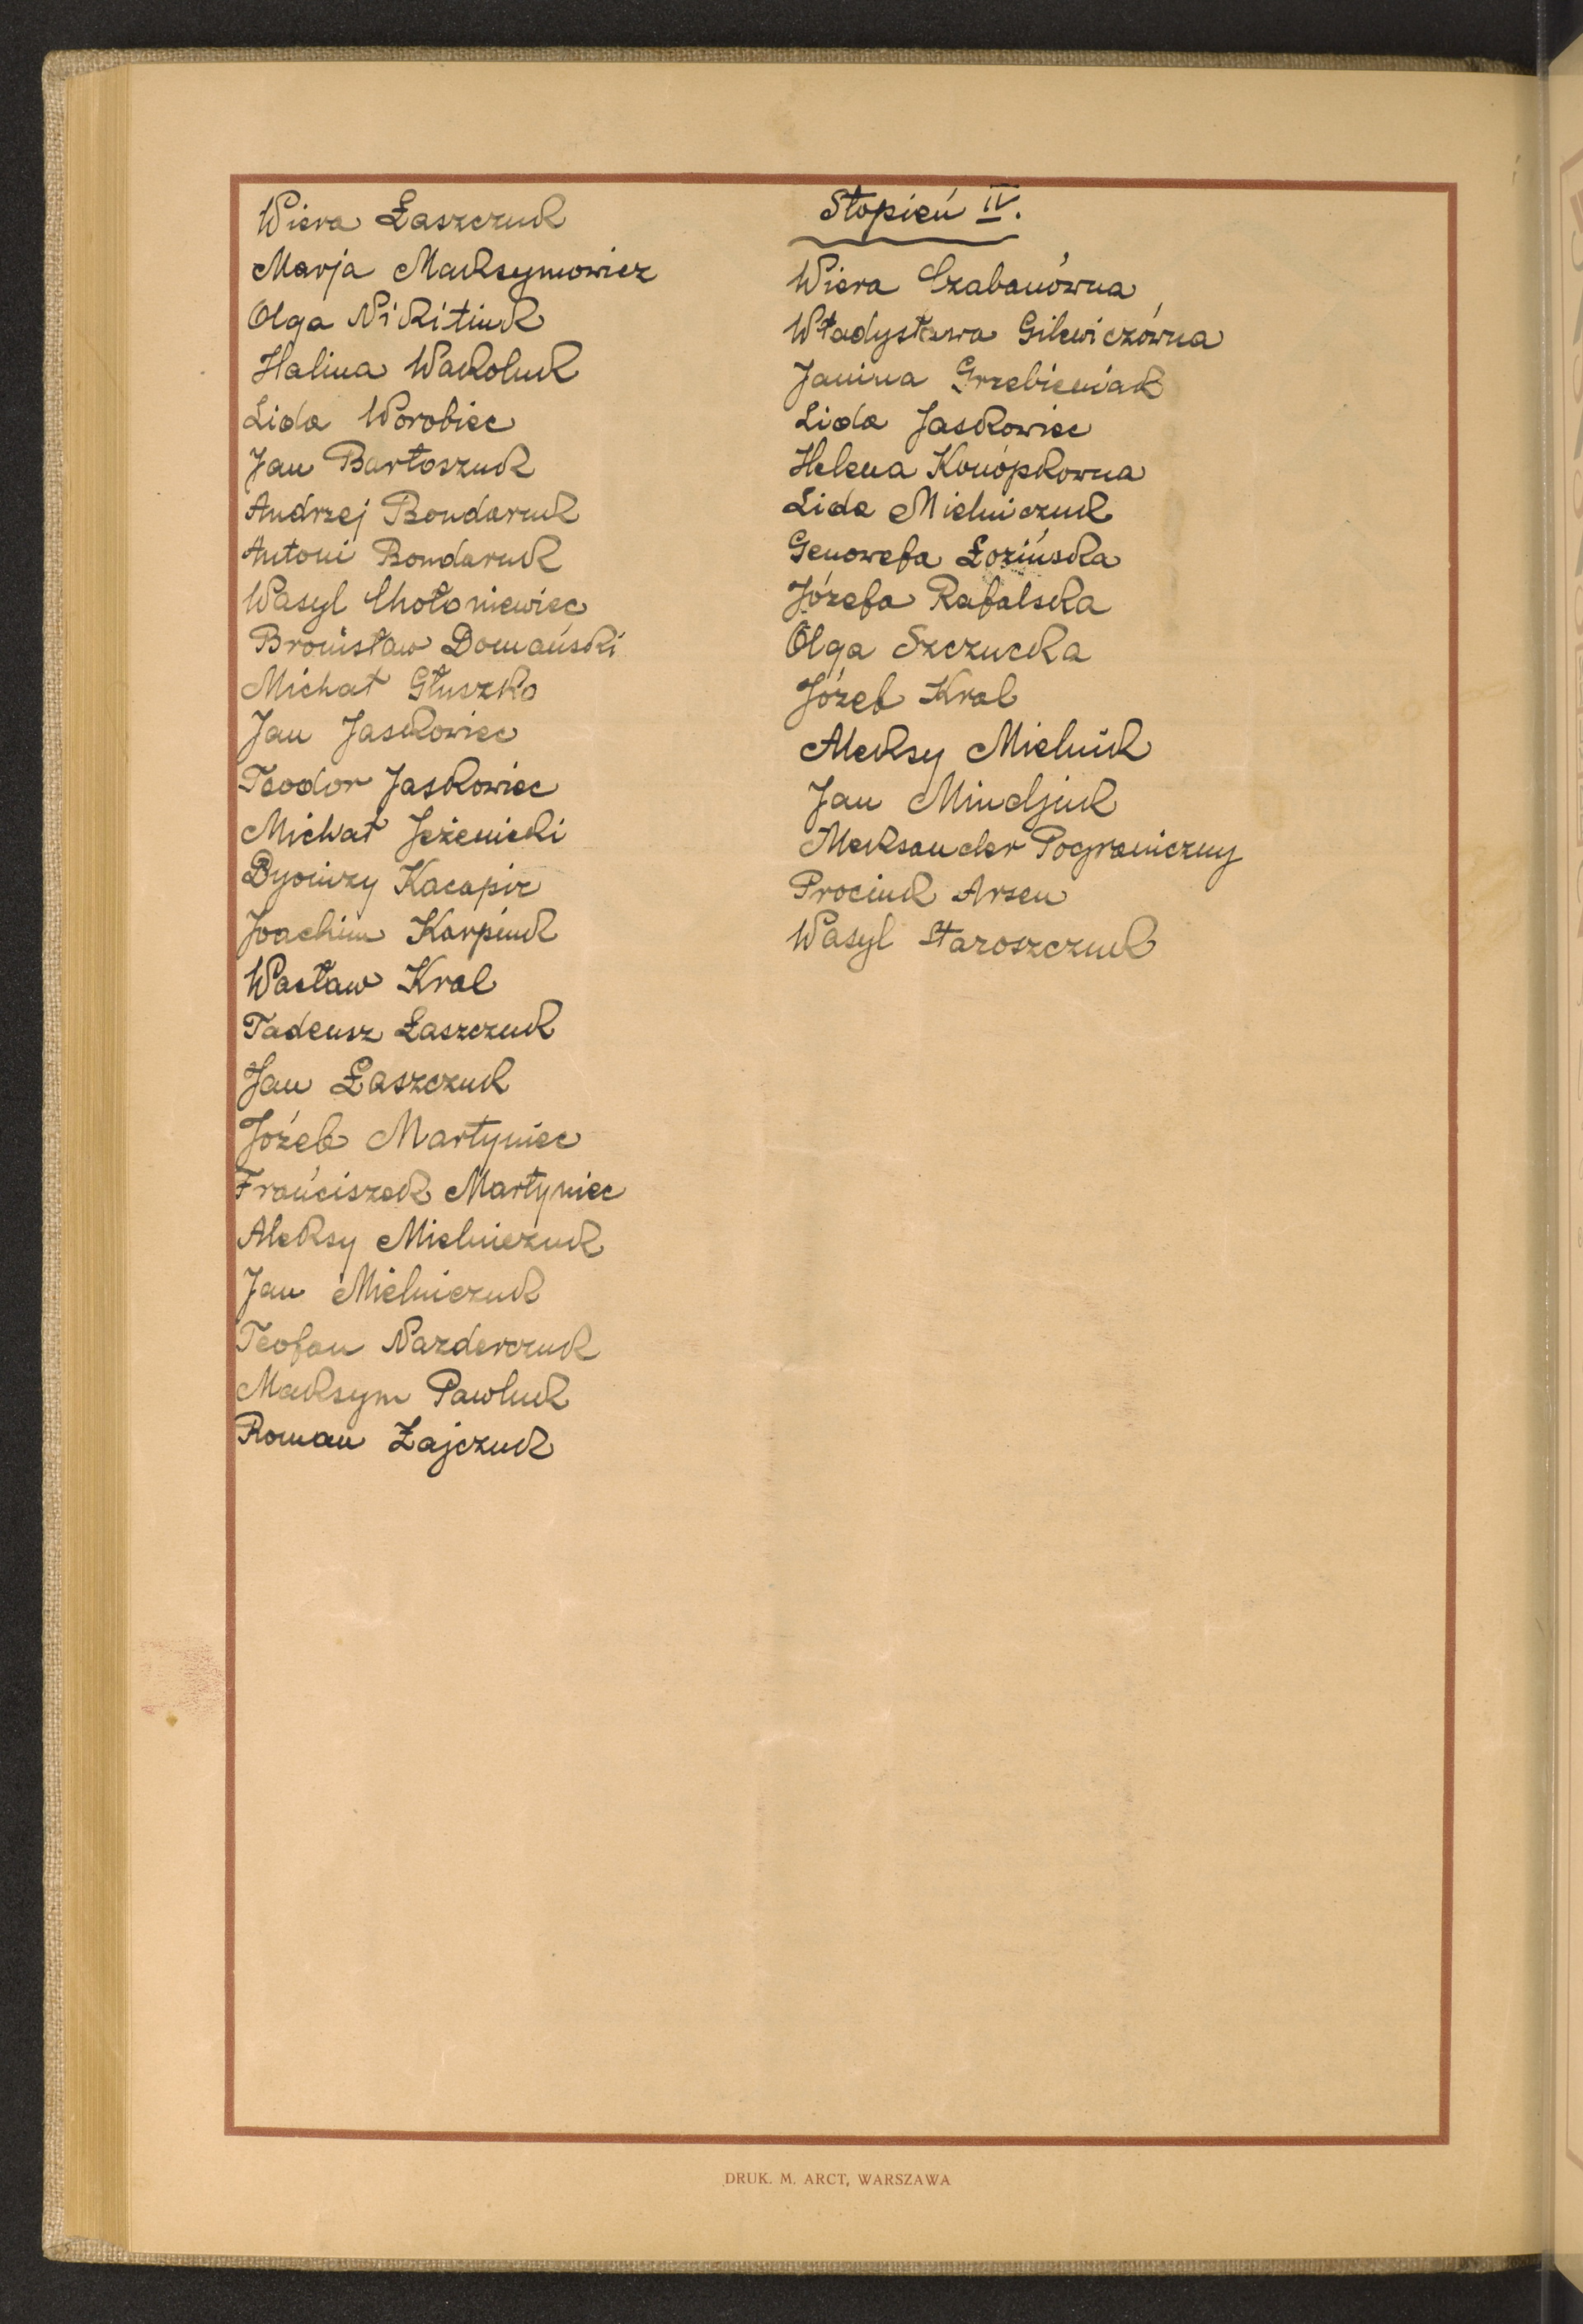 Wiera Łaszczuk
Marja Maksymowicz
Olga Nikitiuk
Halina Wakoluk
Lida Worobiec
Jan Bartoszuk
Andrzej Bondaruk
Antoni Bondaruk
Wasyl Chołoniewiec
Bronisław Domański
Michał Głuszko
Jan Jaskowiec
Teodor Jaskowiec
Michał Jeżenicki
Dyonizy Kacapir
Joachim Karpiuk
Wacław Kral
Tadeusz Łaszczuk
Jan Łaszczuk
Józef Martyniec
Franciszek Martyniec
Aleksy Mielniczuk
Jan Mielniczuk
Teofan Nazderczuk
Maksym Pawluk
Roman Zajczuk
Stopień IV.
Wiera Czabanówna
Władysława Gilewiczówna
Janina Grzebieniak
Lida Jaskowiec
Helena Konópkowna
Lida Mielniczuk
Genowefa Łozińska
Józefa Rafalska
Olga Szczucka
Józef Kral
Aleksy Mielnik
Jan Mindziuk
Aleksander Pograniczny
Prociuk Arsen
Wasyl Staroszczuk
DRUK. M. ARCT, WARSZAWA